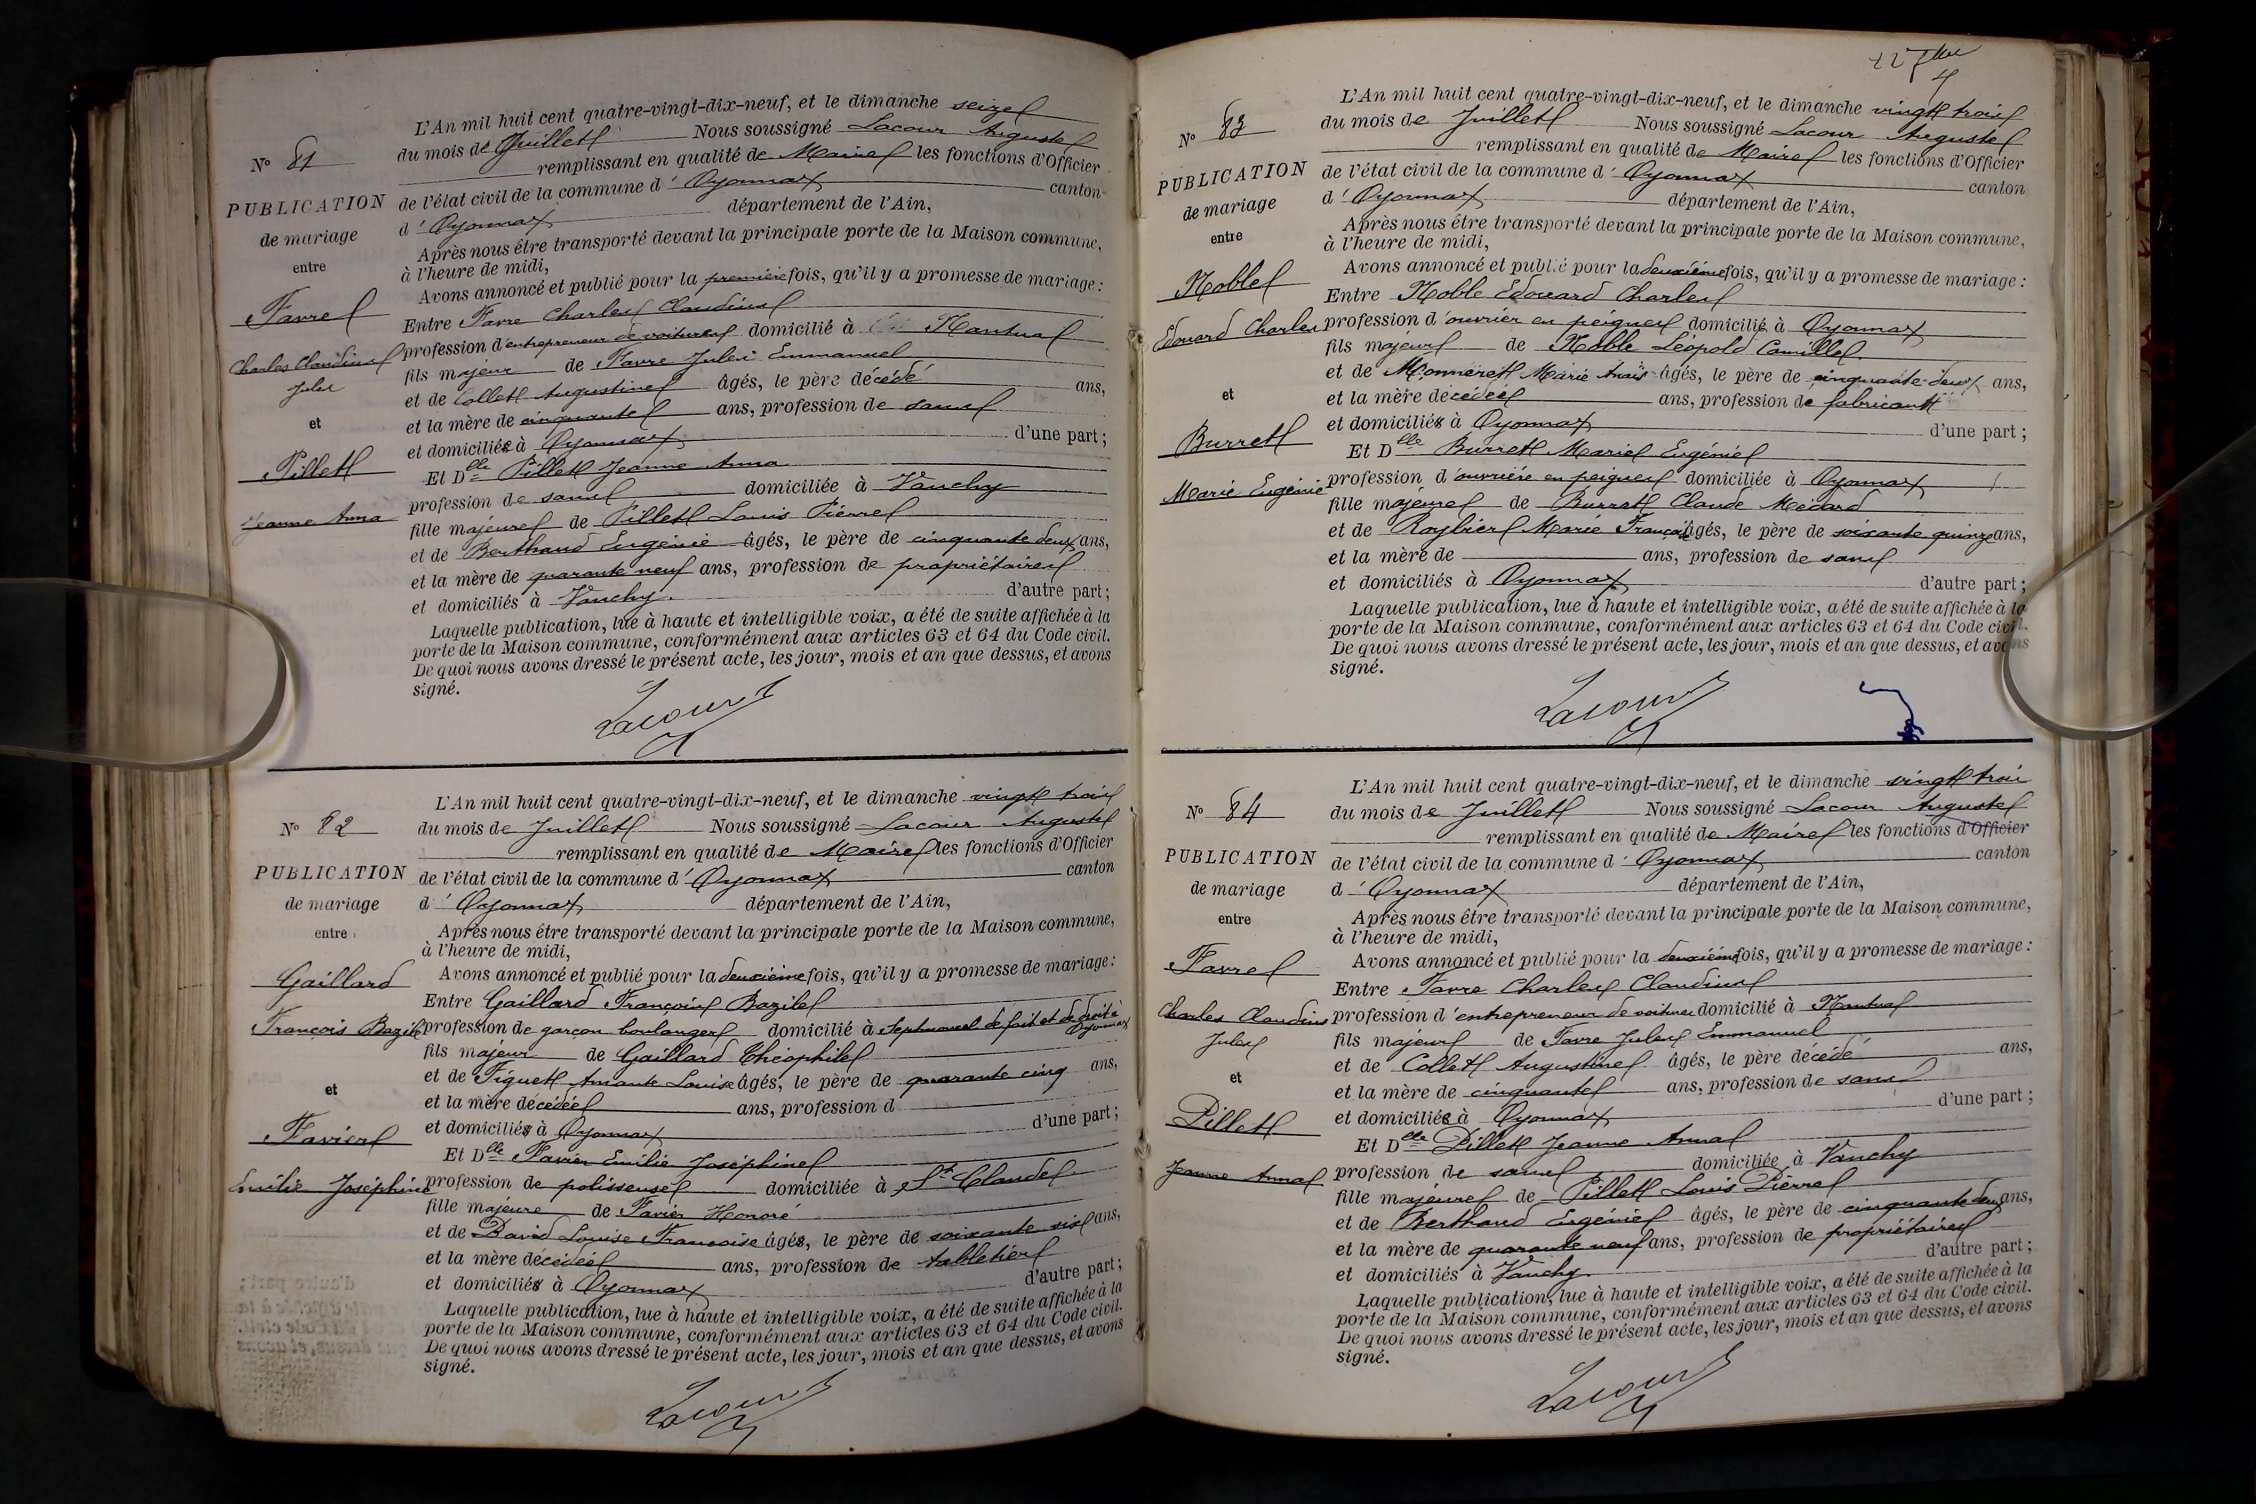 L'An mil huit cent quatre-vingt-dix-neuf, et le dimanche seize
N° 81
du mois de Juillet Nous soussigné Lacour Auguste
remplissant en qualité de Maire les fonctions d'Officier
PUBLICATION
de l'état civil de la commune d' Oyonnax canton
de mariage
d' Oyonnax département de l'Ain,
entre
Après nous être transporté devant la principale porte de la Maison commune,
à l'heure de midi,
Avons annoncé et publié pour la première fois, qu'il y a promesse de mariage :
Favre
Entre Favre Charles Claudius
Charles Claudius
profession d'entrepreneur de voitures domicilié à Nantua
Jules
fils majeur de Favre Jules Emmanuel
et de Collet Augustine âgés, le père décédé ans,
et
et la mère de cinquante ans, profession de sans
et domiciliée à Oyonnax d'une part ;
Pillet
Et Dlle Pillet Jeanne Anna
profession de sans domiciliée à Vanchy
Jeanne Anna
fille majeure de Pillet Louis Pierre
et de Berthaud Eugénie âgés, le père de cinquante deux ans,
et la mère de quarante neuf ans, profession de propriétaires
et domiciliés à Vanchy d'autre part ;
Laquelle publication, lue à haute et intelligible voix, a été de suite affichée à la
porte de la Maison commune, conformément aux articles 63 et 64 du Code civil.
De quoi nous avons dressé le présent acte, les jour, mois et an que dessus, et avons
signé.
Lacour
L'An mil huit cent quatre-vingt-dix-neuf, et le dimanche vingt trois
N° 82
du mois de Juillet Nous soussigné Lacour Auguste
remplissant en qualité de Maire les fonctions d'Officier
PUBLICATION
de l'état civil de la commune d' Oyonnax canton
de mariage
d' Oyonnax département de l'Ain,
entre
Après nous être transporté devant la principale porte de la Maison commune,
à l'heure de midi,
Avons annoncé et publié pour la deuxième fois, qu'il y a promesse de mariage :
Gaillard
Entre Gaillard François Bazile
François Bazile
profession de garçon boulanger domicilié à Septmoncel de fait et de droit à
Oyonnax
fils majeur de Gaillard Théophile
et de Figuet Amante Louise âgés, le père de quarante cinq ans,
et
et la mère décédée ans, profession d
et domiciliés à Oyonnax d'une part ;
Favier
Et Dlle Favier Emilie Joséphine
Emilie Joséphine
profession de polisseuse domiciliée à St Claude
fille majeure de Favier Honoré
et de David Louise Françoise âgés, le père de soixante six ans,
et la mère décédée ans, profession de tabletier
et domiciliés à Oyonnax d'autre part ;
Laquelle publication, lue à haute et intelligible voix, a été de suite affichée à la
porte de la Maison commune, conformément aux articles 63 et 64 du Code civil.
De quoi nous avons dressé le présent acte, les jour, mois et an que dessus, et avons
signé.
Lacour
L'An mil huit cent quatre-vingt-dix-neuf, et le dimanche vingt trois
N° 83
du mois de Juillet Nous soussigné Lacour Auguste
remplissant en qualité de Maire les fonctions d'Officier
PUBLICATION
de l'état civil de la commune d' Oyonnax canton
de mariage
d' Oyonnax département de l'Ain,
entre
Après nous être transporté devant la principale porte de la Maison commune,
à l'heure de midi,
Avons annoncé et publié pour la deuxième fois, qu'il y a promesse de mariage :
Noble
Entre Noble Edouard Charles
Edouard Charles
profession d'ouvrier en peignes domicilié à Oyonnax
fils majeur de Noble Léopold Camille
et de Monneret Marie Anaïs âgés, le père de cinquante-deux ans,
et
et la mère décédée ans, profession de fabricant
et domiciliés à Oyonnax d'une part ;
Burret
Et Dlle Burret Marie Eugénie
Marie Eugénie
profession d'ouvrière en peignes domiciliée à Oyonnax
fille majeure de Burret Claude Médard
et de Roybier Marie Françoise âgés, le père de soixante quinze ans,
et la mère de ans, profession de sans
et domiciliés à Oyonnax d'autre part ;
Laquelle publication, lue à haute et intelligible voix, a été de suite affichée à la
porte de la Maison commune, conformément aux articles 63 et 64 du Code civil.
De quoi nous avons dressé le présent acte, les jour, mois et an que dessus, et avons
signé.
Lacour
L'An mil huit cent quatre-vingt-dix-neuf, et le dimanche vingt trois
N° 84
du mois de Juillet Nous soussigné Lacour Auguste
remplissant en qualité de Maire les fonctions d'Officier
PUBLICATION
de l'état civil de la commune d' Oyonnax canton
de mariage
d' Oyonnax département de l'Ain,
entre
Après nous être transporté devant la principale porte de la Maison commune,
à l'heure de midi,
Avons annoncé et publié pour la deuxième fois, qu'il y a promesse de mariage :
Favre
Entre Favre Charles Claudius
Charles Claudius
profession d'entrepreneur de voitures domicilié à Nantua
Jules
fils majeur de Favre Jules Emmanuel
et de Collet Augustine âgés, le père décédé ans,
et
et la mère de cinquante ans, profession de sans
et domiciliée à Oyonnax d'une part ;
Pillet
Et Dlle Pillet Jeanne Anna
Jeanne Anna
profession de sans domiciliée à Vanchy
fille majeure de Pillet Louis Pierre
et de Berthaud Eugénie âgés, le père de cinquante deux ans,
et la mère de quarante neuf ans, profession de propriétaires
et domiciliés à Vanchy d'autre part ;
Laquelle publication, lue à haute et intelligible voix, a été de suite affichée à la
porte de la Maison commune, conformément aux articles 63 et 64 du Code civil.
De quoi nous avons dressé le présent acte, les jour, mois et an que dessus, et avons
signé.
Lacour